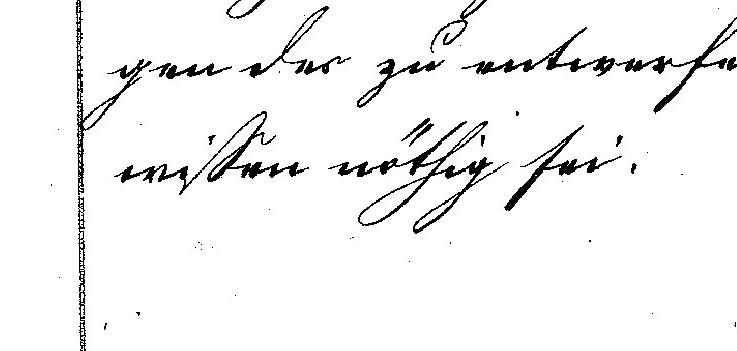 gen des zu entwerfe
wissen nöthig sei.